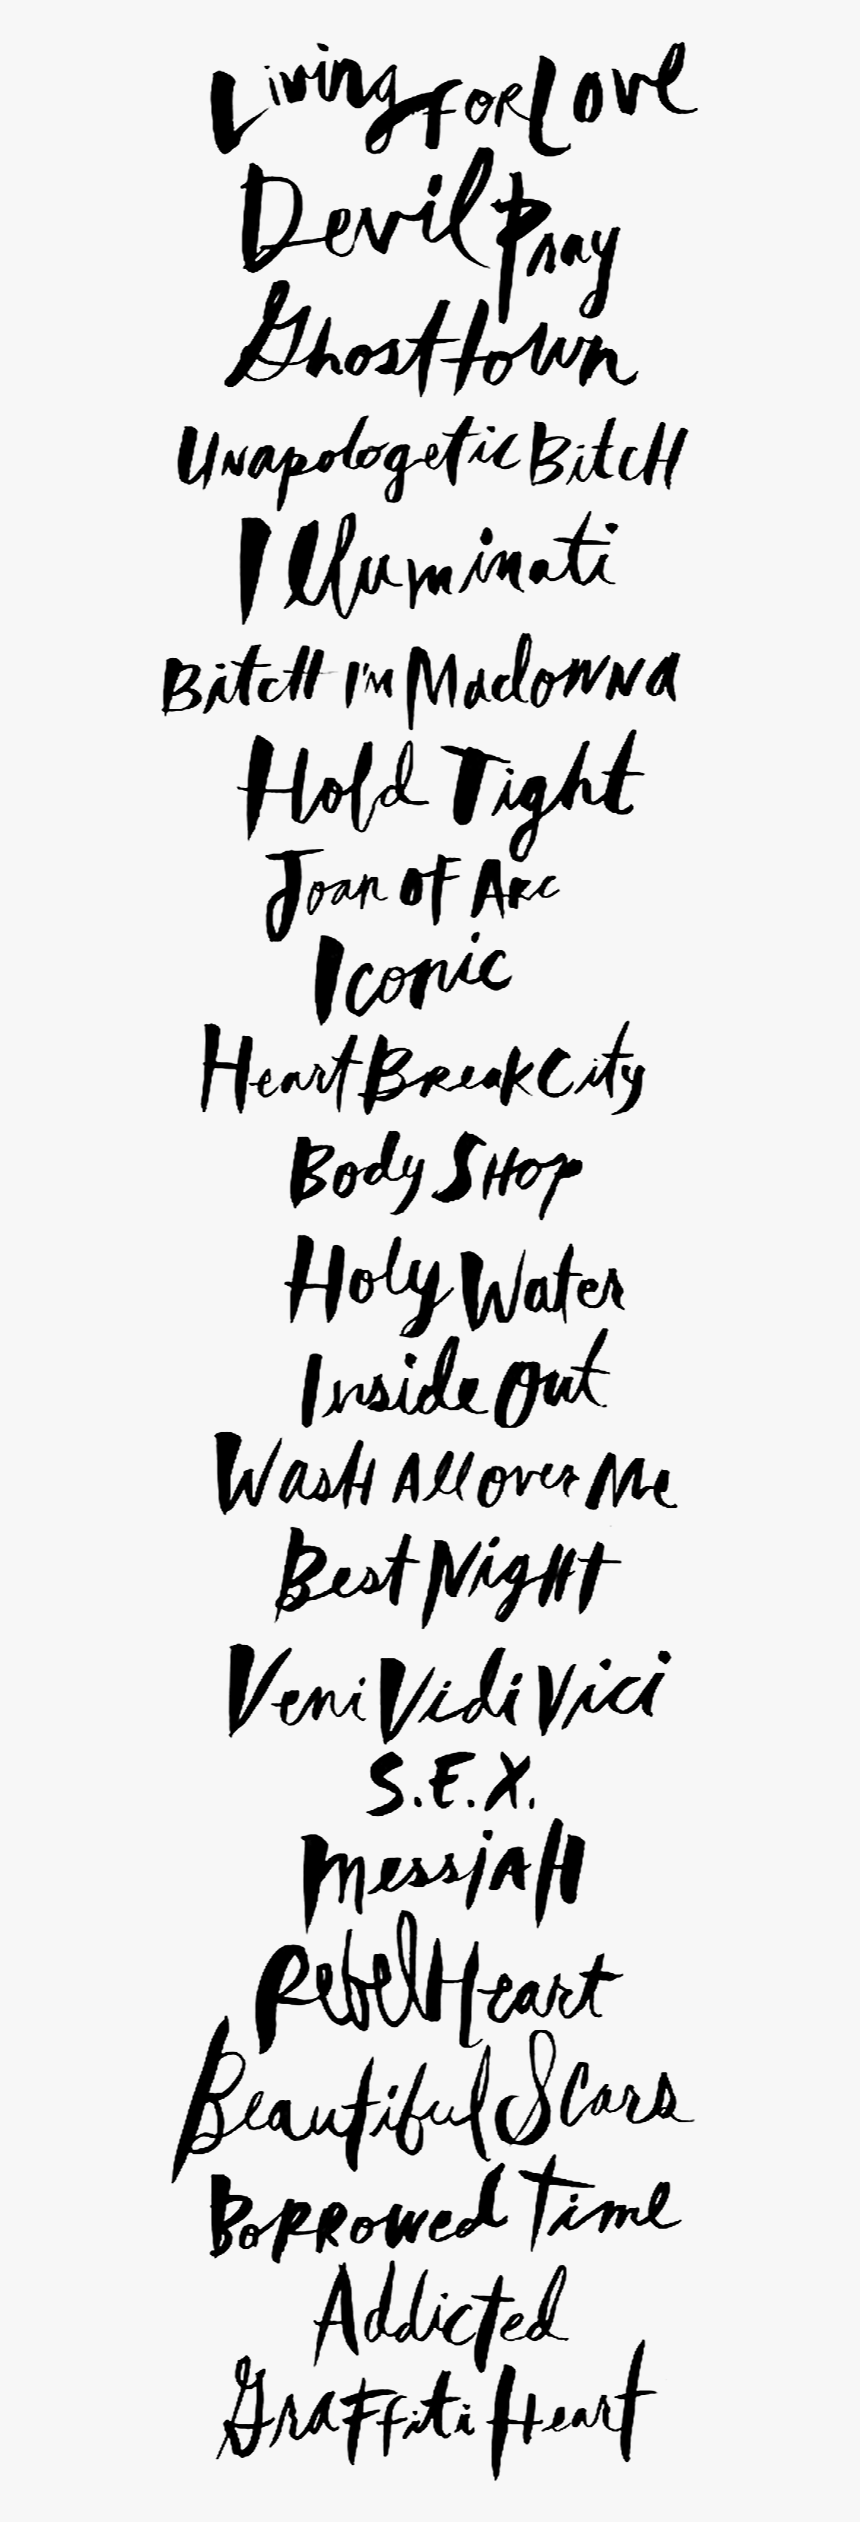 Living For Love
Devil Pray
Ghosttown
Unapologetic Bitch
Illuminati
Bitch I'm Madonna
Hold Tight
Joan of Arc
Iconic
HeartBreakCity
Body Shop
Holy Water
Inside Out
Wash All Over Me
Best Night
Veni Vidi Vici
S.E.X.
Messiah
Rebel Heart
Beautiful Scars
Borrowed Time
Addicted
Graffiti Heart